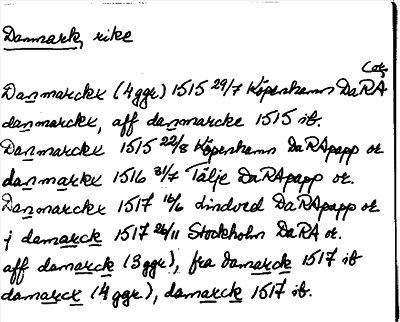 Danmark, rike
or.
Danmarckx (4 ggr) 1515 29/7 Köpenhamn DaRA
danmarckx, aff danmarcke 1515 ib.
Danmarckx 1515 22/8 Köpenhamn DaRApapp or
danmarkx 1516 31/7 Tälje DaRApapp or.
Danmarckx 1517 16/6 Lindved DaRApapp or
j damarck 1517 26/11 Stockholm DaRA or.
aff damarck (3 ggr), fra damarck 1517 ib
damarcx (4 ggr), damarck 1517 ib.